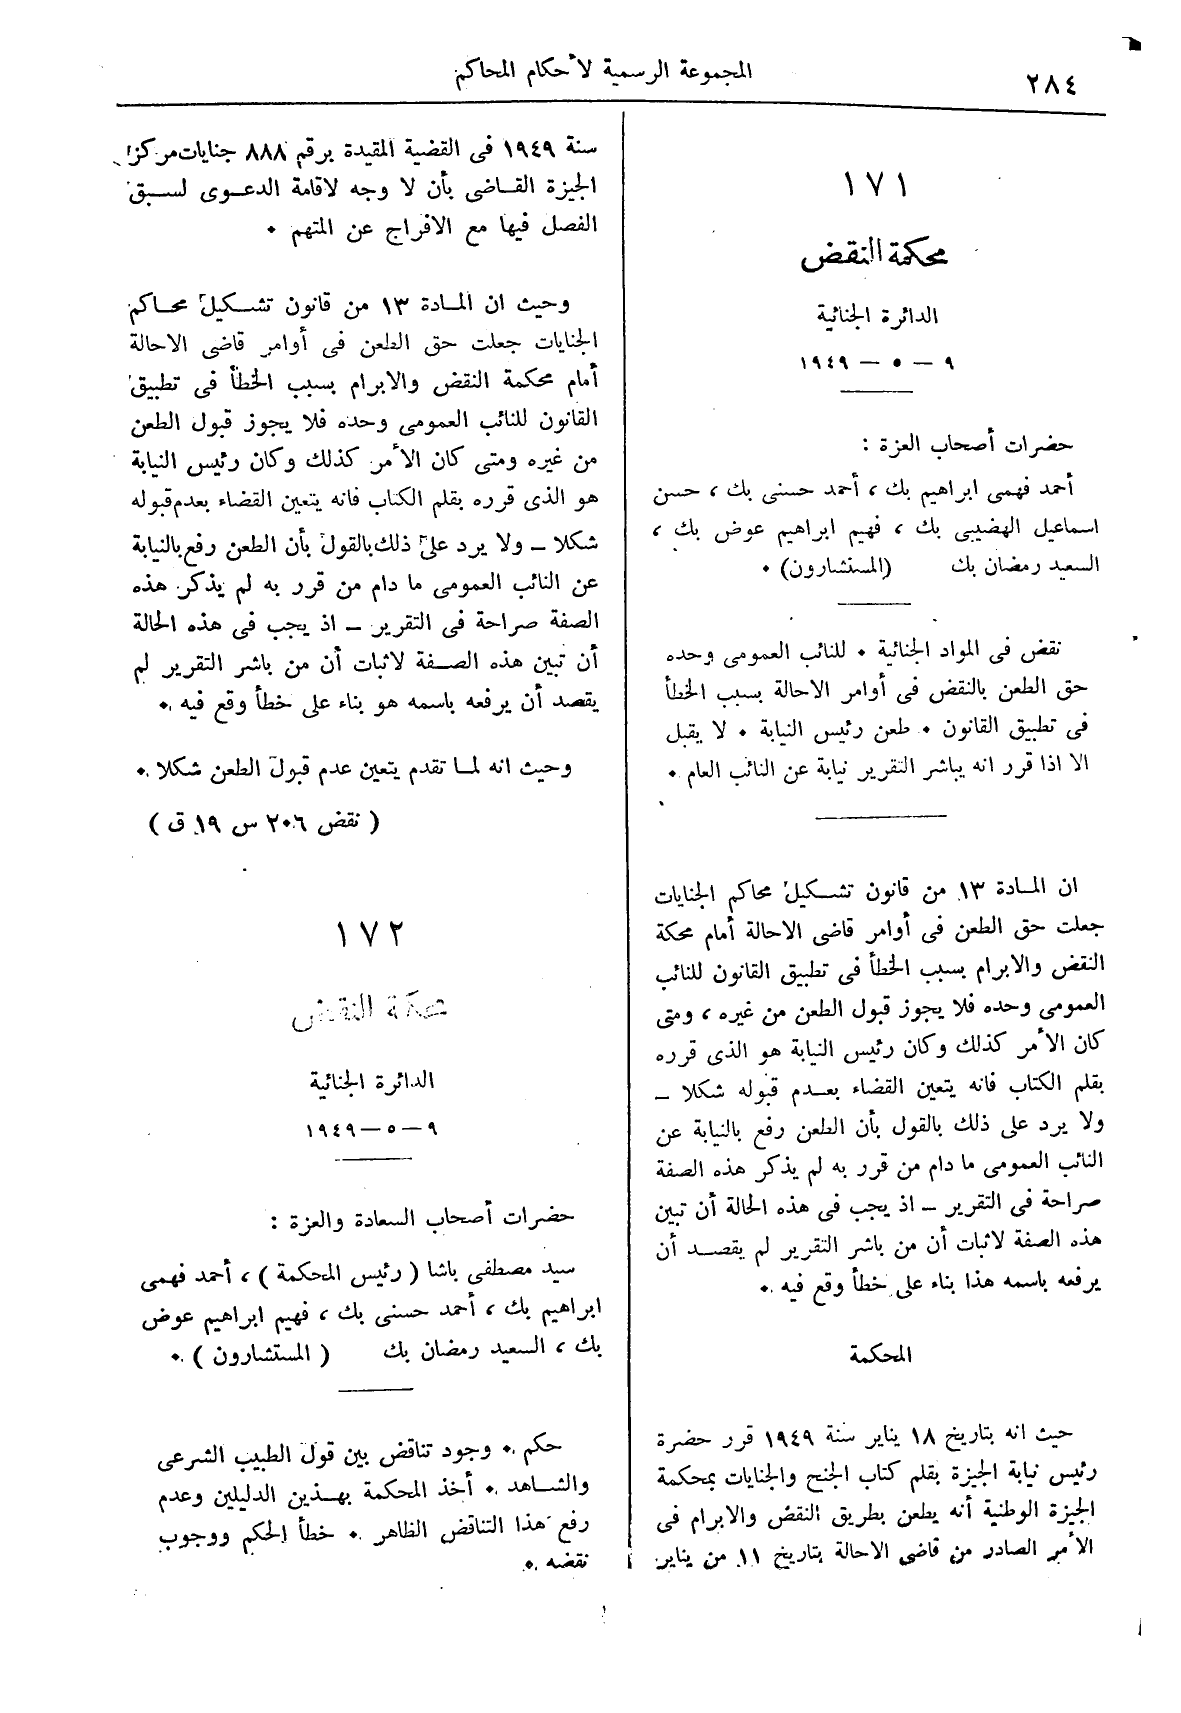 ٢٨٤
المجموعة الرسمية لأحكام المحاكم
١٧١
محكمة النقض
الدائرة الجنائية
٩ — ٥ — ١٩٤٩
حضرات أصحاب العزة :
أحمد فهمى ابراهيم بك ، أحمد حسنى بك ، حسن
اسماعيل الهضيبى بك ، فهيم ابراهيم عوض بك ،
السعيد رمضان بك (المستشارون) .
نقض فى المواد الجنائية . للنائب العمومى وحده
حق الطعن بالنقض فى أوامر الاحالة بسبب الخطأ
فى تطبيق القانون . طعن رئيس النيابة . لا يقبل
الا اذا قرر انه يباشر التقرير نيابة عن النائب العام .
ان المادة ١٣ من قانون تشكيل محاكم الجنايات
جعلت حق الطعن فى أوامر قاضى الاحالة أمام محكمة
النقض والابرام بسبب الخطأ فى تطبيق القانون للنائب
العمومى وحده فلا يجوز قبول الطعن من غيره ، ومتى
كان الأمر كذلك وكان رئيس النيابة هو الذى قرره
بقلم الكتاب فانه يتعين القضاء بعدم قبوله شكلا —
ولا يرد على ذلك بالقول بأن الطعن رفع بالنيابة عن
النائب العمومى ما دام من قرر به لم يذكر هذه الصفة
صراحة فى التقرير — اذ يجب فى هذه الحالة أن تبين
هذه الصفة لاثبات أن من باشر التقرير لم يقصد أن
يرفعه باسمه هذا بناء على خطأ وقع فيه .
المحكمة
حيث انه بتاريخ ١٨ يناير سنة ١٩٤٩ قرر حضرة
رئيس نيابة الجيزة بقلم كتاب الجنح والجنايات بمحكمة
الجيزة الوطنية أنه يطعن بطريق النقض والابرام فى
الأمر الصادر من قاضى الاحالة بتاريخ ١١ من يناير
سنة ١٩٤٩ فى القضية المقيدة برقم ٨٨٨ جنايات مركز
الجيزة القاضى بأن لا وجه لاقامة الدعوى لسبق
الفصل فيها مع الافراج عن المتهم .
وحيث ان المادة ١٣ من قانون تشكيل محاكم
الجنايات جعلت حق الطعن فى أوامر قاضى الاحالة
أمام محكمة النقض والابرام بسبب الخطأ فى تطبيق
القانون للنائب العمومى وحده فلا يجوز قبول الطعن
من غيره ومتى كان الأمر كذلك وكان رئيس النيابة
هو الذى قرره بقلم الكتاب فانه يتعين القضاء بعدم قبوله
شكلا — ولا يرد على ذلك بالقول بأن الطعن رفع بالنيابة
عن النائب العمومى ما دام من قرر به لم يذكر هذه
الصفة صراحة فى التقرير — اذ يجب فى هذه الحالة
أن تبين هذه الصفة لاثبات أن من باشر التقرير لم
يقصد أن يرفعه باسمه هو بناء على خطأ وقع فيه .
وحيث انه لما تقدم يتعين عدم قبول الطعن شكلا .
( نقض ٢٠٦ س ١٩ ق )
١٧٢
محكمة النقض
الدائرة الجنائية
٩ — ٥ — ١٩٤٩
حضرات أصحاب السعادة والعزة :
سيد مصطفى باشا ( رئيس المحكمة ) ، أحمد فهمى
ابراهيم بك ، أحمد حسنى بك ، فهيم ابراهيم عوض
بك ، السعيد رمضان بك ( المستشارون ) .
حكم . وجود تناقض بين قول الطبيب الشرعى
والشاهد . أخذ المحكمة بهذين الدليلين وعدم
رفع هذا التناقض الظاهر . خطأ الحكم ووجوب
نقضه .